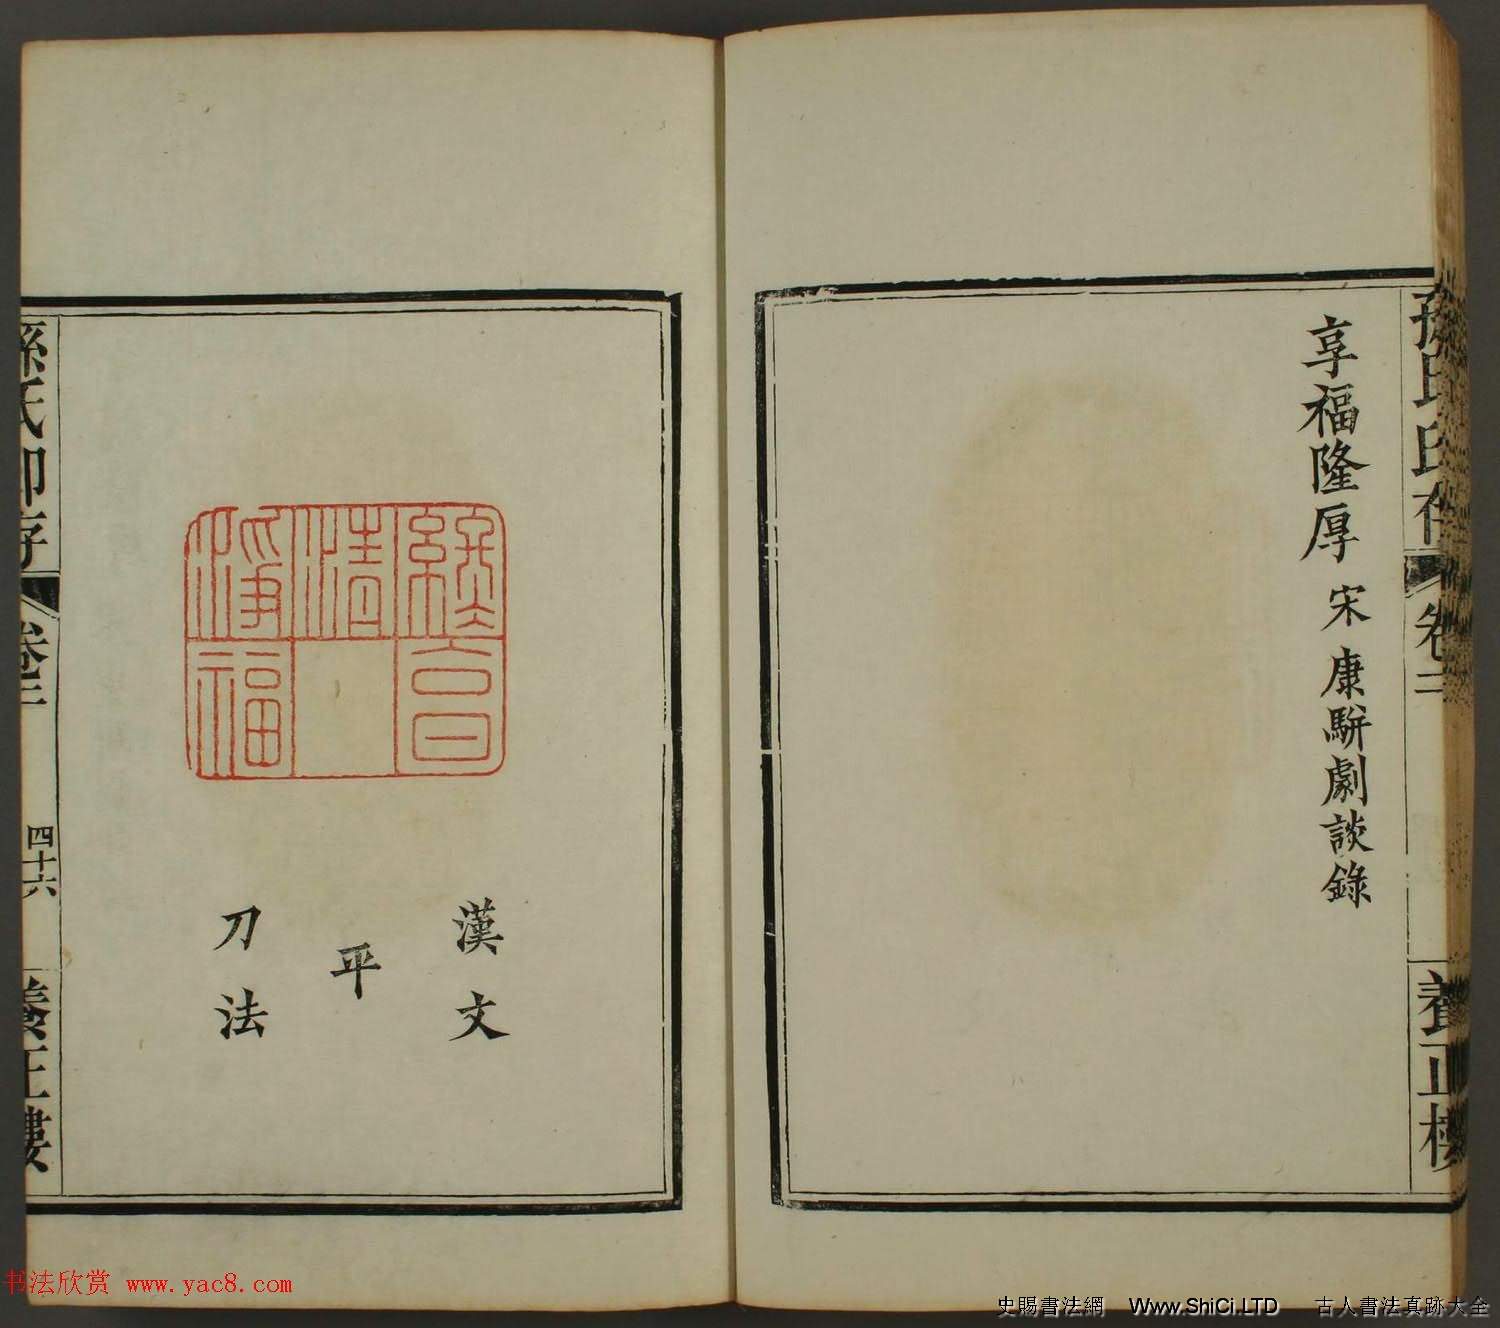 孫氏印存 卷二 養正樓
享福隆厚 宋康駢劇談錄
享
清
淨福
漢文
平
刀法
孫氏印存 卷二 四十六 養正樓
书法欣赏 www.yac8.com
史賜書法網 Www.ShiCi.LTD 古人書法真跡大全